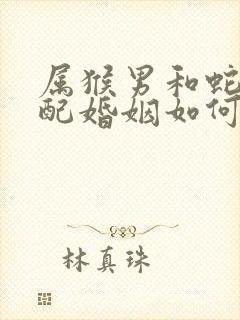 属猴男和蛇
配婚姻如何
林真珠